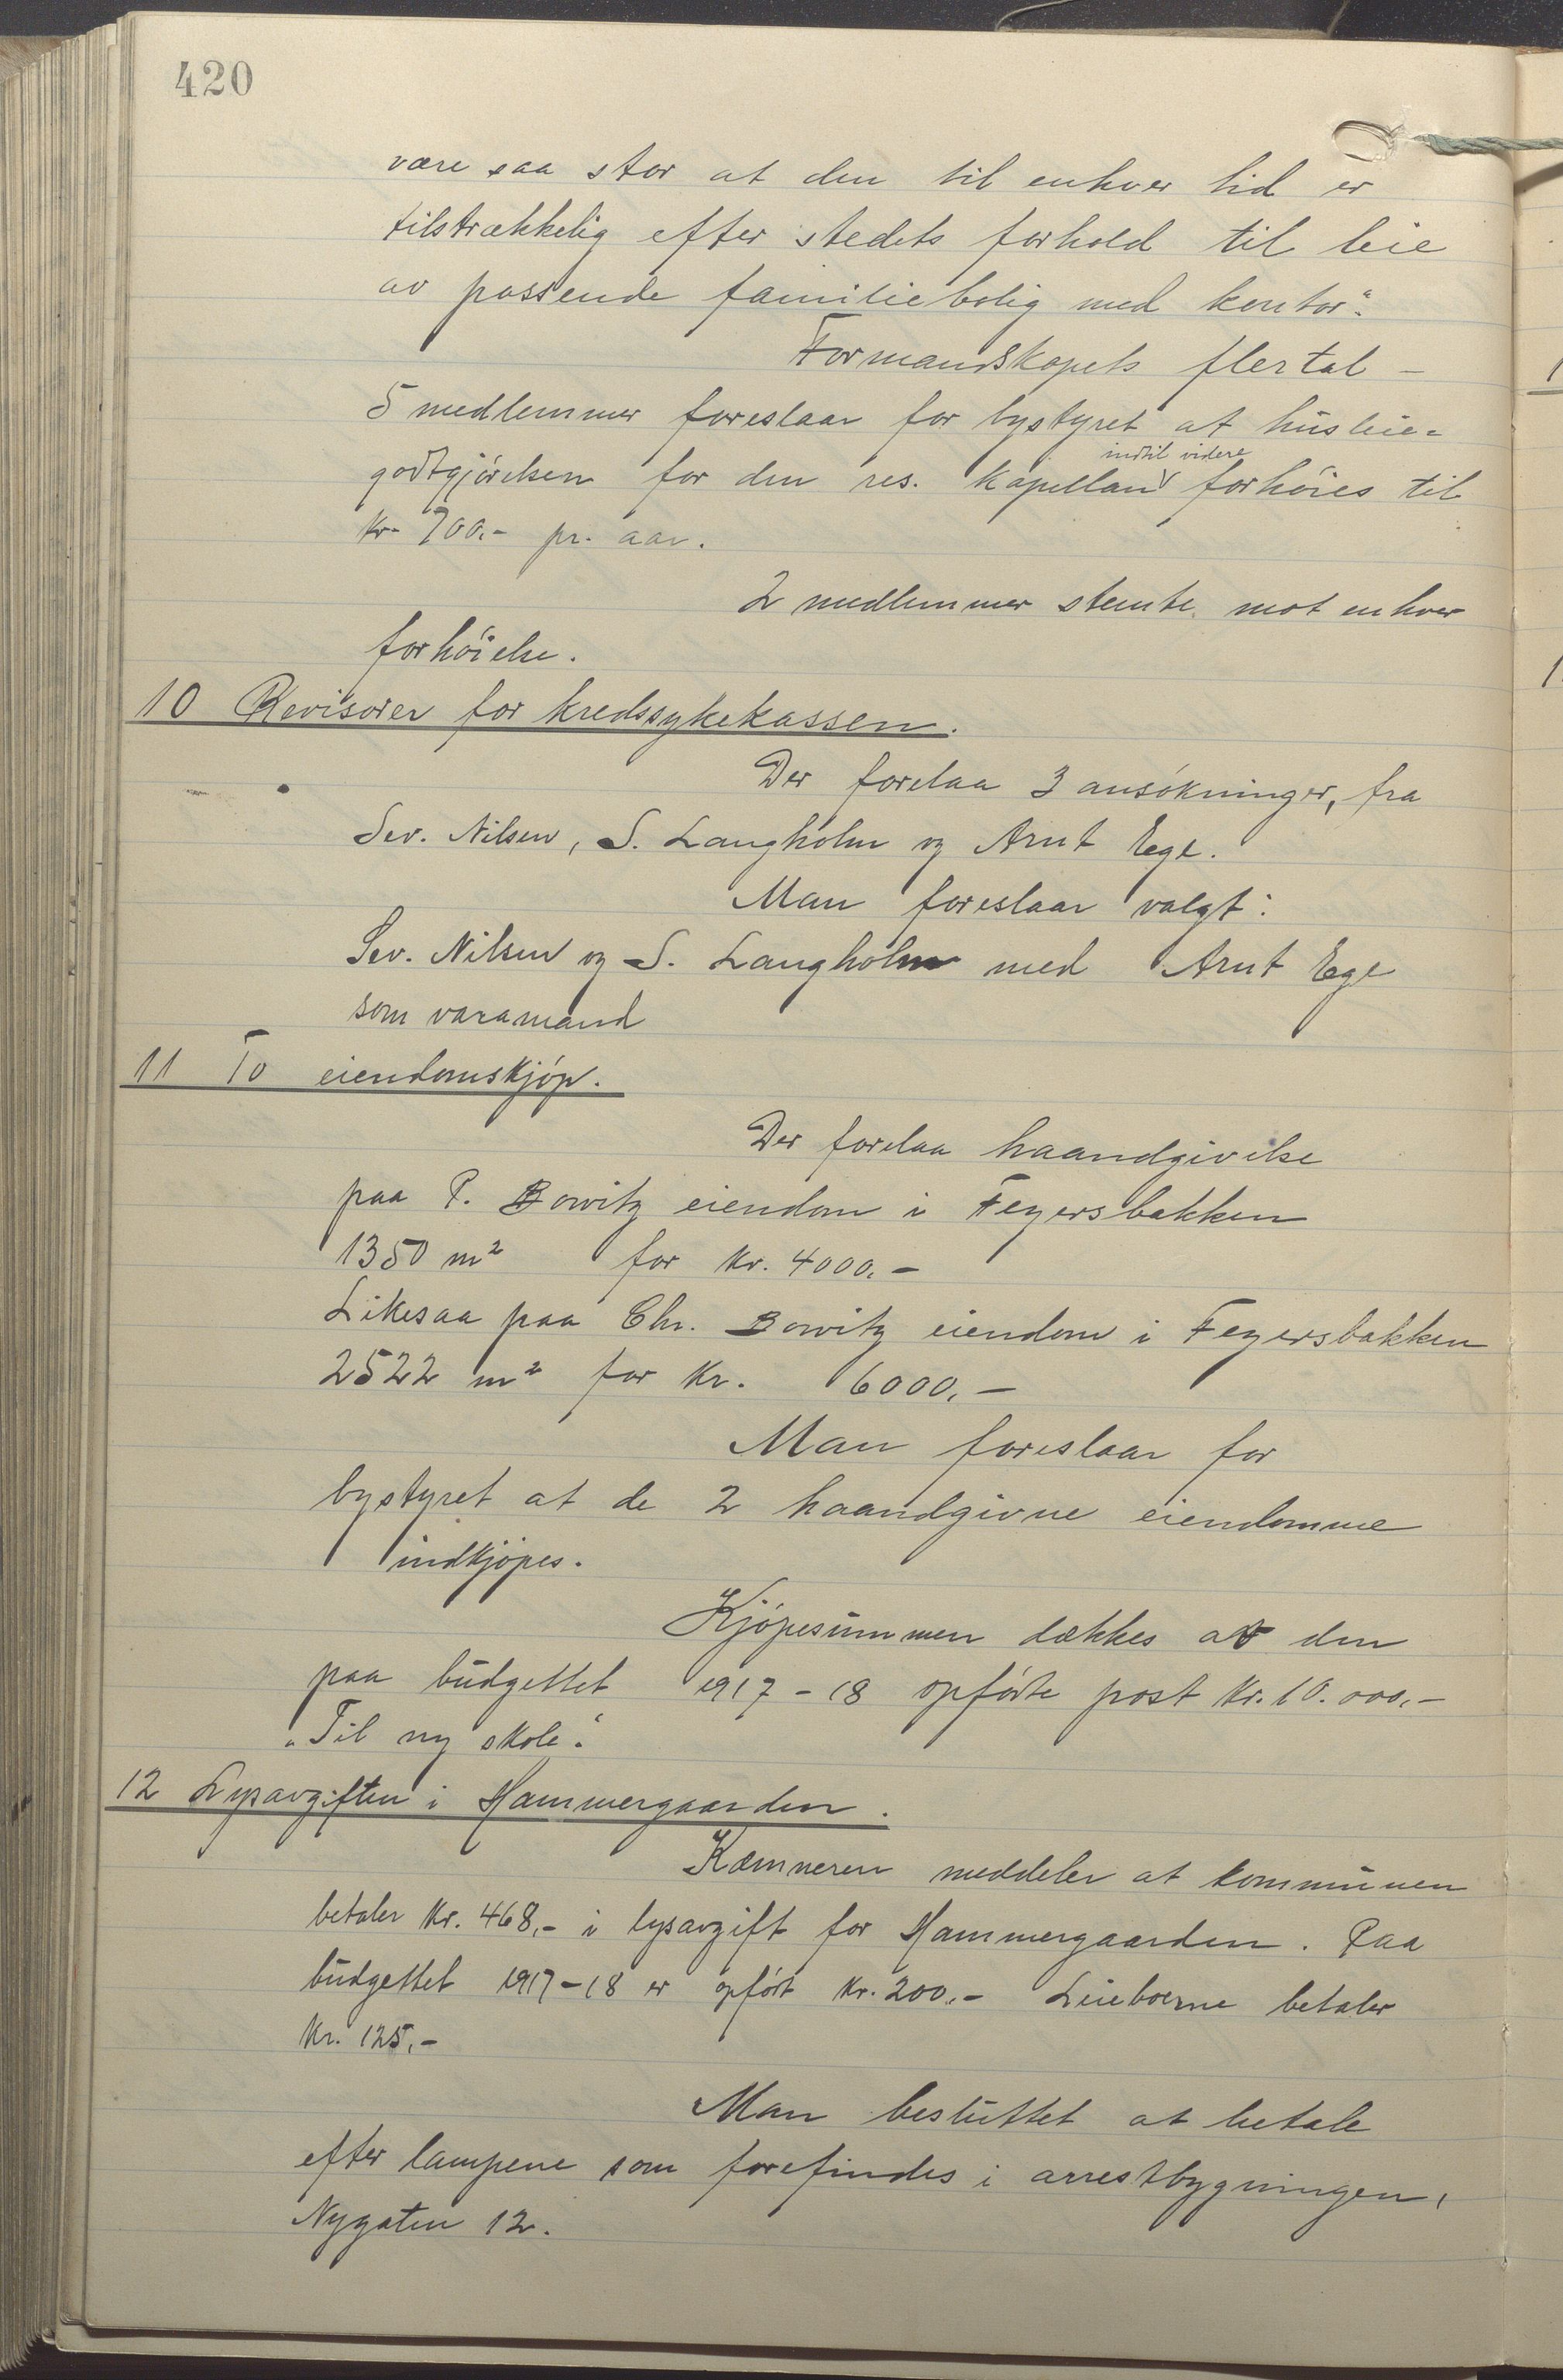 420
være saa stor at den til enhver tid er
tilstrækkelig efter stedets forhold til leie
av passende familiebolig med kontor".
Formandskapets flertal –
5 medlemmer foreslaar for bystyret at husleie-
indtil videre
godtgjörelsen for den res. kapellan forhöies til
kr 700.- pr. aar.
2 medlemmer stemte mot enhver
forhöielse.
10 Revisorer for kredssykekassen.
Der forelaa 3 ansökninger, fra
Sev. Nilsen, S. Langholm og Arnt Ege.
Man foreslaar valgt:
Sev. Nilsen og S. Langholm med Arnt Ege
som varamand
11 To eiendomskjöp.
Der forelaa haandgivelse
paa P. Bowitz eiendom i Feyersbakken
1350 m² for kr. 4000.-
Likesaa paa Chr. Bowitz eiendom i Feyersbakken
2522 m² for kr. 6000.-
Man foreslaar for
bystyret at de 2 haandgivne eiendomme
indkjöpes.
Kjöpesummen dækkes av den
paa budgettet 1917-18 opförte post kr. 10.000.-
"Til ny skole".
12 Lysavgiften i Hammergaarden.
Kæmneren meddeler at kommunen
betaler kr. 468.- i lysavgift for Hammergaarden. Paa
budgettet 1917-18 er opfört kr. 200.- Leieboerne betaler
kr. 125.-
Man besluttet at betale
efter lampene som forefindes i arrestbygningen,
Nygaten 12.